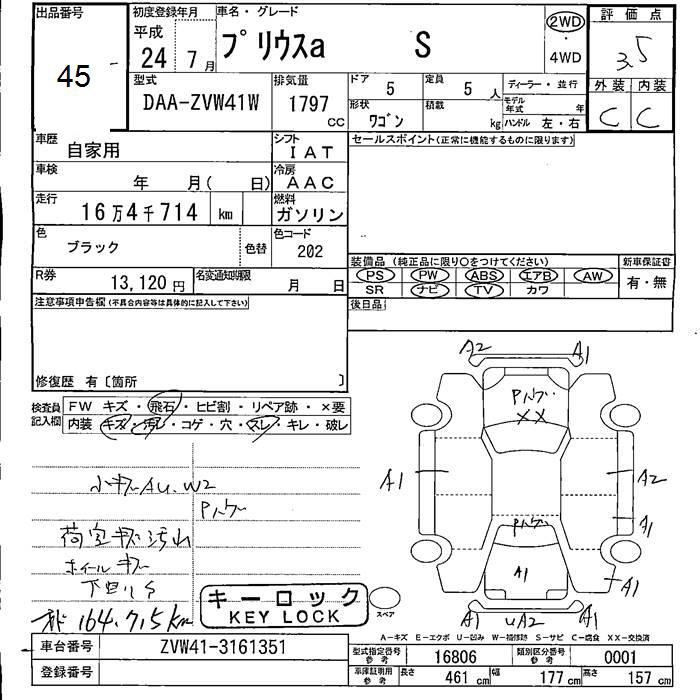 出品番号
45
初度登録年月
平成
24年7月
車名・グレード
プリウスa S
2WD
・
4WD
評価点
3.5
外装 内装
C C
型式
DAA-ZVW41W
排気量
1797
CC
ドア
5
定員
5人
形状
ワゴン
積載
kg
ディーラー・並行
モデル年式 年
ハンドル 左・右
車歴
自家用
シフト
IAT
車検
年 月( 日)
冷房
AAC
走行
16万4千714 km
燃料
ガソリン
色
ブラック
色替
色コード
202
R券
13,120円
名変通知期限
月 日
セールスポイント(正常に機能するものに限ります)
装備品(純正品に限り○をつけてください)
PS PW ABS エアB AW
SR ナビ TV カワ
新車保証書
有・無
後日品
注意事項申告欄(不具合内容等は具体的に記入して下さい)
修復歴 有〔箇所 〕
検査員記入欄
FW キズ・飛石・ヒビ割・リペア跡・×要
内装 キズ・汚れ・コゲ・穴・スレ・キレ・破レ
小キズ AU、W2
Pハゲ
荷室キズ汚れ
ホイールキズ
下回りS
164,715km
キーロック
KEY LOCK
A2 A1
Pハゲ
XX
A1 A2
A1
Pハゲ
A1
A1
A1 UA2 A1
スペア
A-キズ E-エクボ U-凹み W-補修跡 S-サビ C-腐食 XX-交換済
車台番号
ZVW41-3161351
登録番号
型式指定番号
参考
16806
類別区分番号
参考
0001
車庫証明用
参考
長さ 461cm 幅 177cm 高さ 157cm